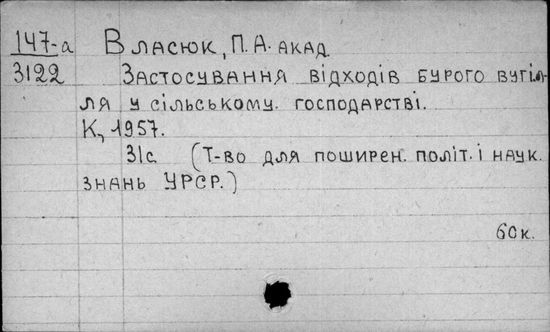 147-а Власюк, П.А. акад
3122 Застосування відходів бурого вугіл-
ля у сільському. господарстві.
К, 1957.
31с. (Т-во для поширен. політ. і наук.
знань УРСР.)
60к.